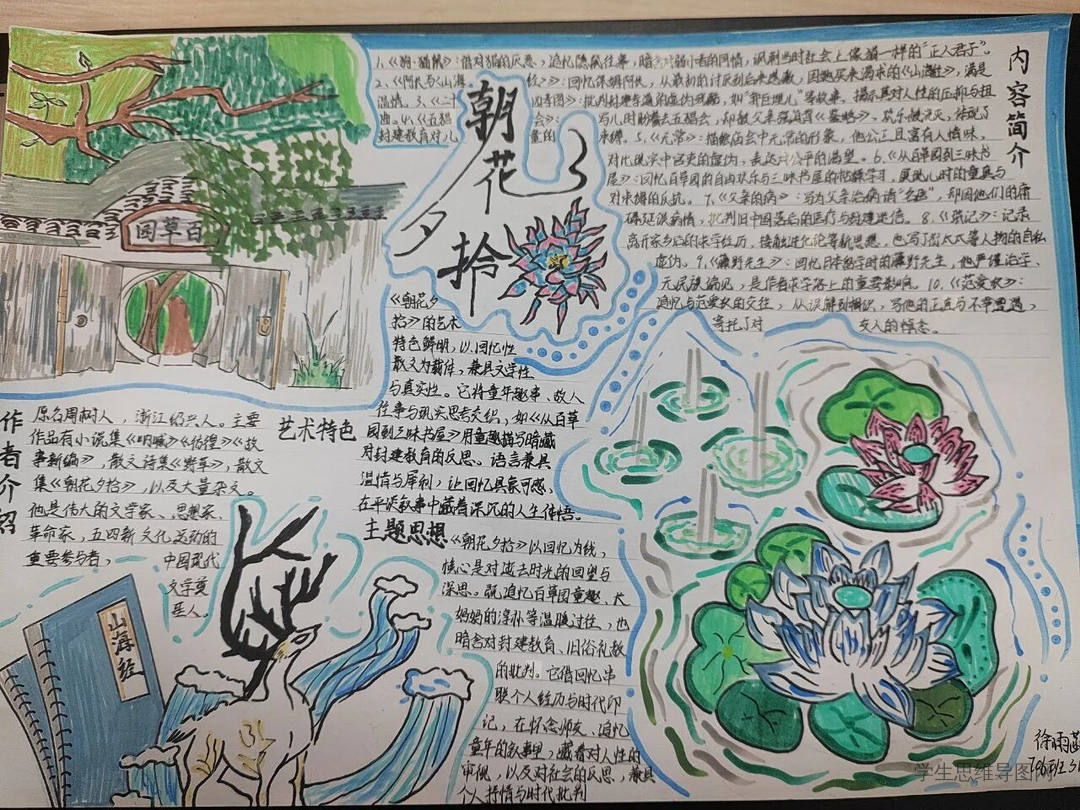 朝花夕拾
内容简介
1.《狗·猫·鼠》:借对猫的厌恶,追忆隐鼠往事,暗含对弱小者的同情,讽刺当时社会上像猫一样的“正人君子”。
2.《阿长与《山海经》》:回忆保姆阿长,从最初的讨厌到后来感激,因她买来渴求的《山海经》,满是
温情。3.《二十四孝图》:批判封建孝道的虚伪残酷,如“郭巨埋儿”等故事,揭示其对人性的压抑与扭
曲。4.《五猖会》:写儿时盼着去五猖会,却被父亲强迫背《鉴略》,欢乐被浇灭,体现了
封建教育对儿童的束缚。5.《无常》:描绘庙会中无常的形象,他公正且富有人情味,
对比现实中官吏的虚伪,表达对公平的渴望。6.《从百草园到三味书
屋》:回忆百草园的自由欢乐与三味书屋的枯燥学习,展现儿时的童真与
对束缚的反抗。7.《父亲的病》:写为父亲治病请“名医”,却因他们的庸
碌延误病情,批判旧中国落后的医疗与封建迷信。8.《琐记》:记录
离开家乡后的求学经历,接触进化论等新思想,也写了衍太太等人物的自私
虚伪。9.《藤野先生》:回忆日本留学时的藤野先生,他严谨治学、
无民族偏见,是作者求学路上的重要影响。10.《范爱农》:
追忆与范爱农的交往,从误解到相识,写他的正直与不幸遭遇,
寄托了对友人的悼念。
百草园
作者介绍
原名周树人,浙江绍兴人。主要
作品有小说集《呐喊》《彷徨》《故
事新编》,散文诗集《野草》,散文
集《朝花夕拾》,以及大量杂文。
他是伟大的文学家、思想家、
革命家,五四新文化运动的
重要参与者,中国现代
文学奠
基人。
艺术特色
《朝花夕
拾》的艺术
特色鲜明,以回忆性
散文为载体,兼具文学性
与真实性。它将童年趣事、故人
往事与现实思考交织,如《从百草
园到三味书屋》用童趣描写暗藏
对封建教育的反思。语言兼具
温情与犀利,让回忆具象可感,
在平淡叙事中藏着深沉的人生体悟。
主题思想
《朝花夕拾》以回忆为线,
核心是对逝去时光的回望与
深思。既追忆百草园童趣、长
妈妈的淳朴等温暖过往,也
暗含对封建教育、旧俗礼教
的批判。它借回忆串
联个人经历与时代印
记,在怀念师友、追忆
童年的叙事里,藏着对人性的
审视,以及对社会的反思,兼具
个人抒情与时代批判
山海经
学生思维导图